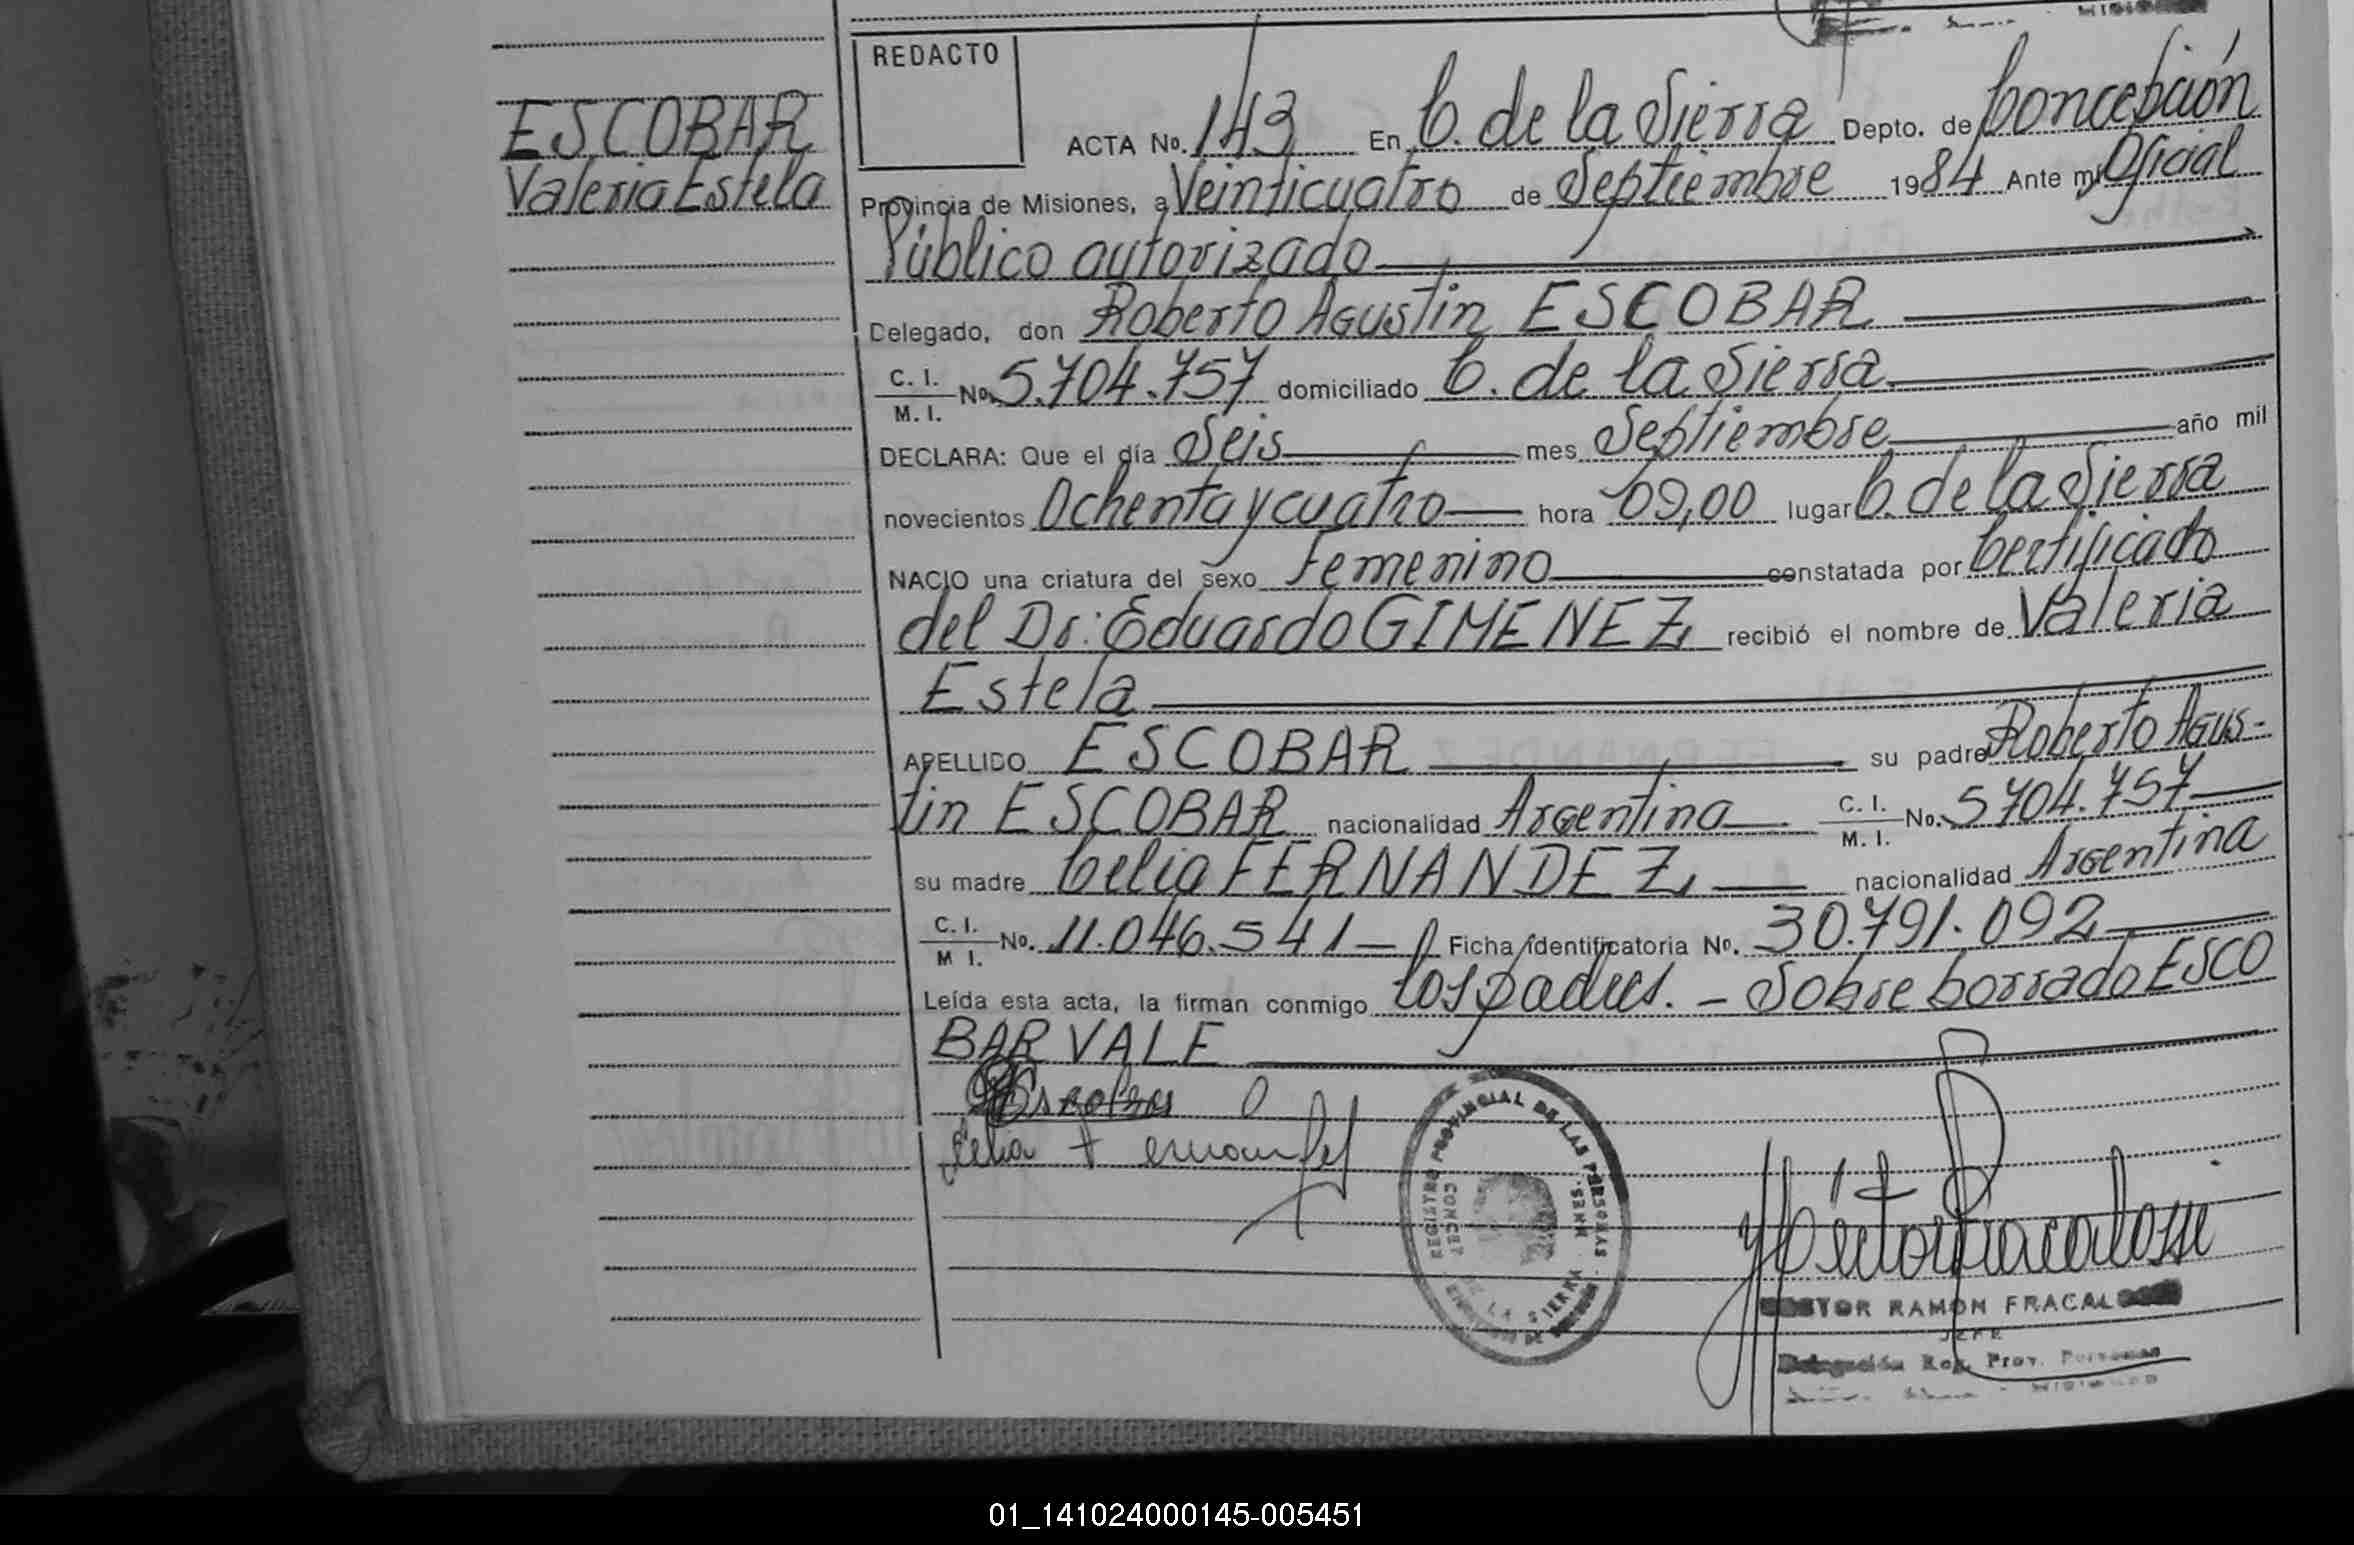 REDACTO
ESCOBAR
Valeria Estela
ACTA No. 143 En C. de la Sierra Depto. de Concepción
Provincia de Misiones, a Veinticuatro de Septiembre 1984 Ante mí Oficial
Público autorizado
Delegado, don Roberto Agustin ESCOBAR
C. I.
M. I.
No. 5.704.757 domiciliado C. de la Sierra
DECLARA: Que el día Seis mes Septiembre año mil
novecientos Ochenta y cuatro hora 09,00 lugar C. de la Sierra
NACIO una criatura del sexo Femenino constatada por Certificado
del Dr: Eduardo GIMENEZ, recibió el nombre de Valeria
Estela
APELLIDO ESCOBAR su padre Roberto Agus-
tin ESCOBAR nacionalidad Argentina C. I. M. I. No. 5704.757
su madre Celia FERNANDEZ, nacionalidad Argentina
C. I. M I. No. 11.046.541 Ficha identificatoria No. 30.791.092
Leída esta acta, la firman conmigo los padres. - Sobre borrado ESCO
BAR VALE
Escobar
Celia Fernandez
REGISTRO PROVINCIAL DE LAS PERSONAS
DE LA SIERRA
Héctor Fracalossi
RAMON FRACAL
JEFE
Delegación Reg. Prov. Personas
01_141024000145-005451